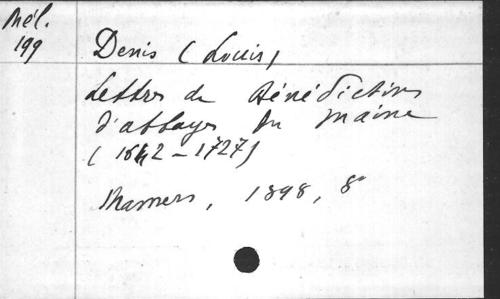 Mél.
199
Denis (Louis)
Lettres de Bénédictins
d'abbayes du Maine
(1642-1727)
Mamers, 1898, 8°